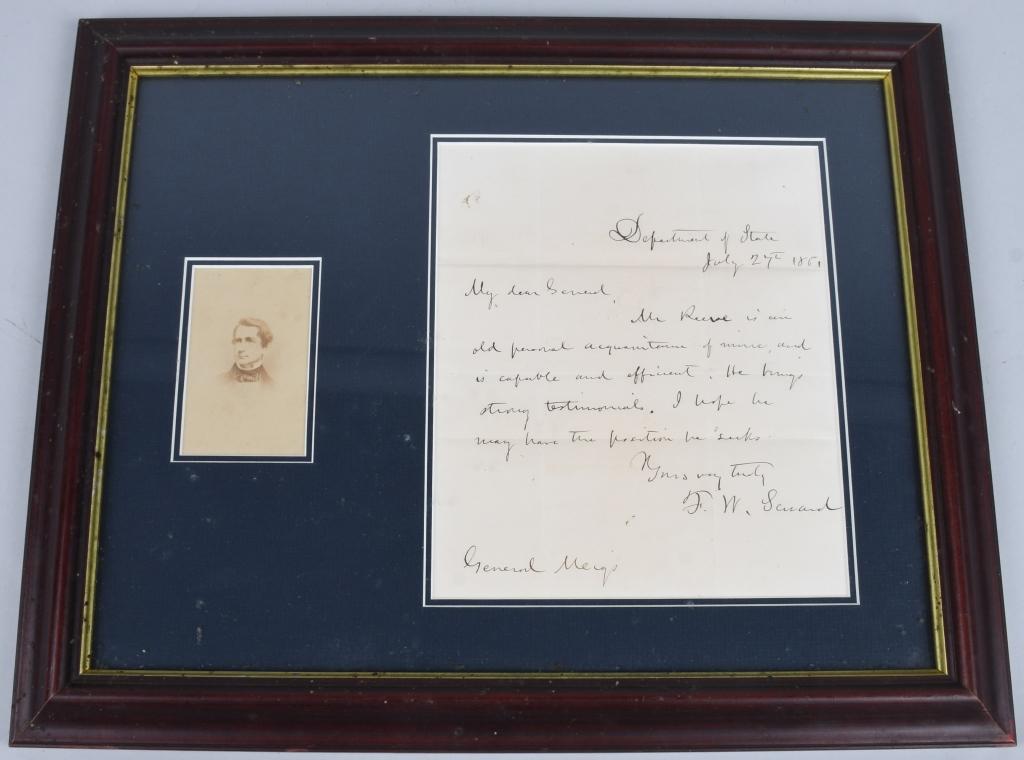 Department of State
July 27th 1861
My dear General,
Mr Reeve is an
old personal acquaintance of mine, and
is capable and efficient. He brings
strong testimonials. I hope he
may have the position he seeks.
Yours very truly
F. W. Seward
General Meigs